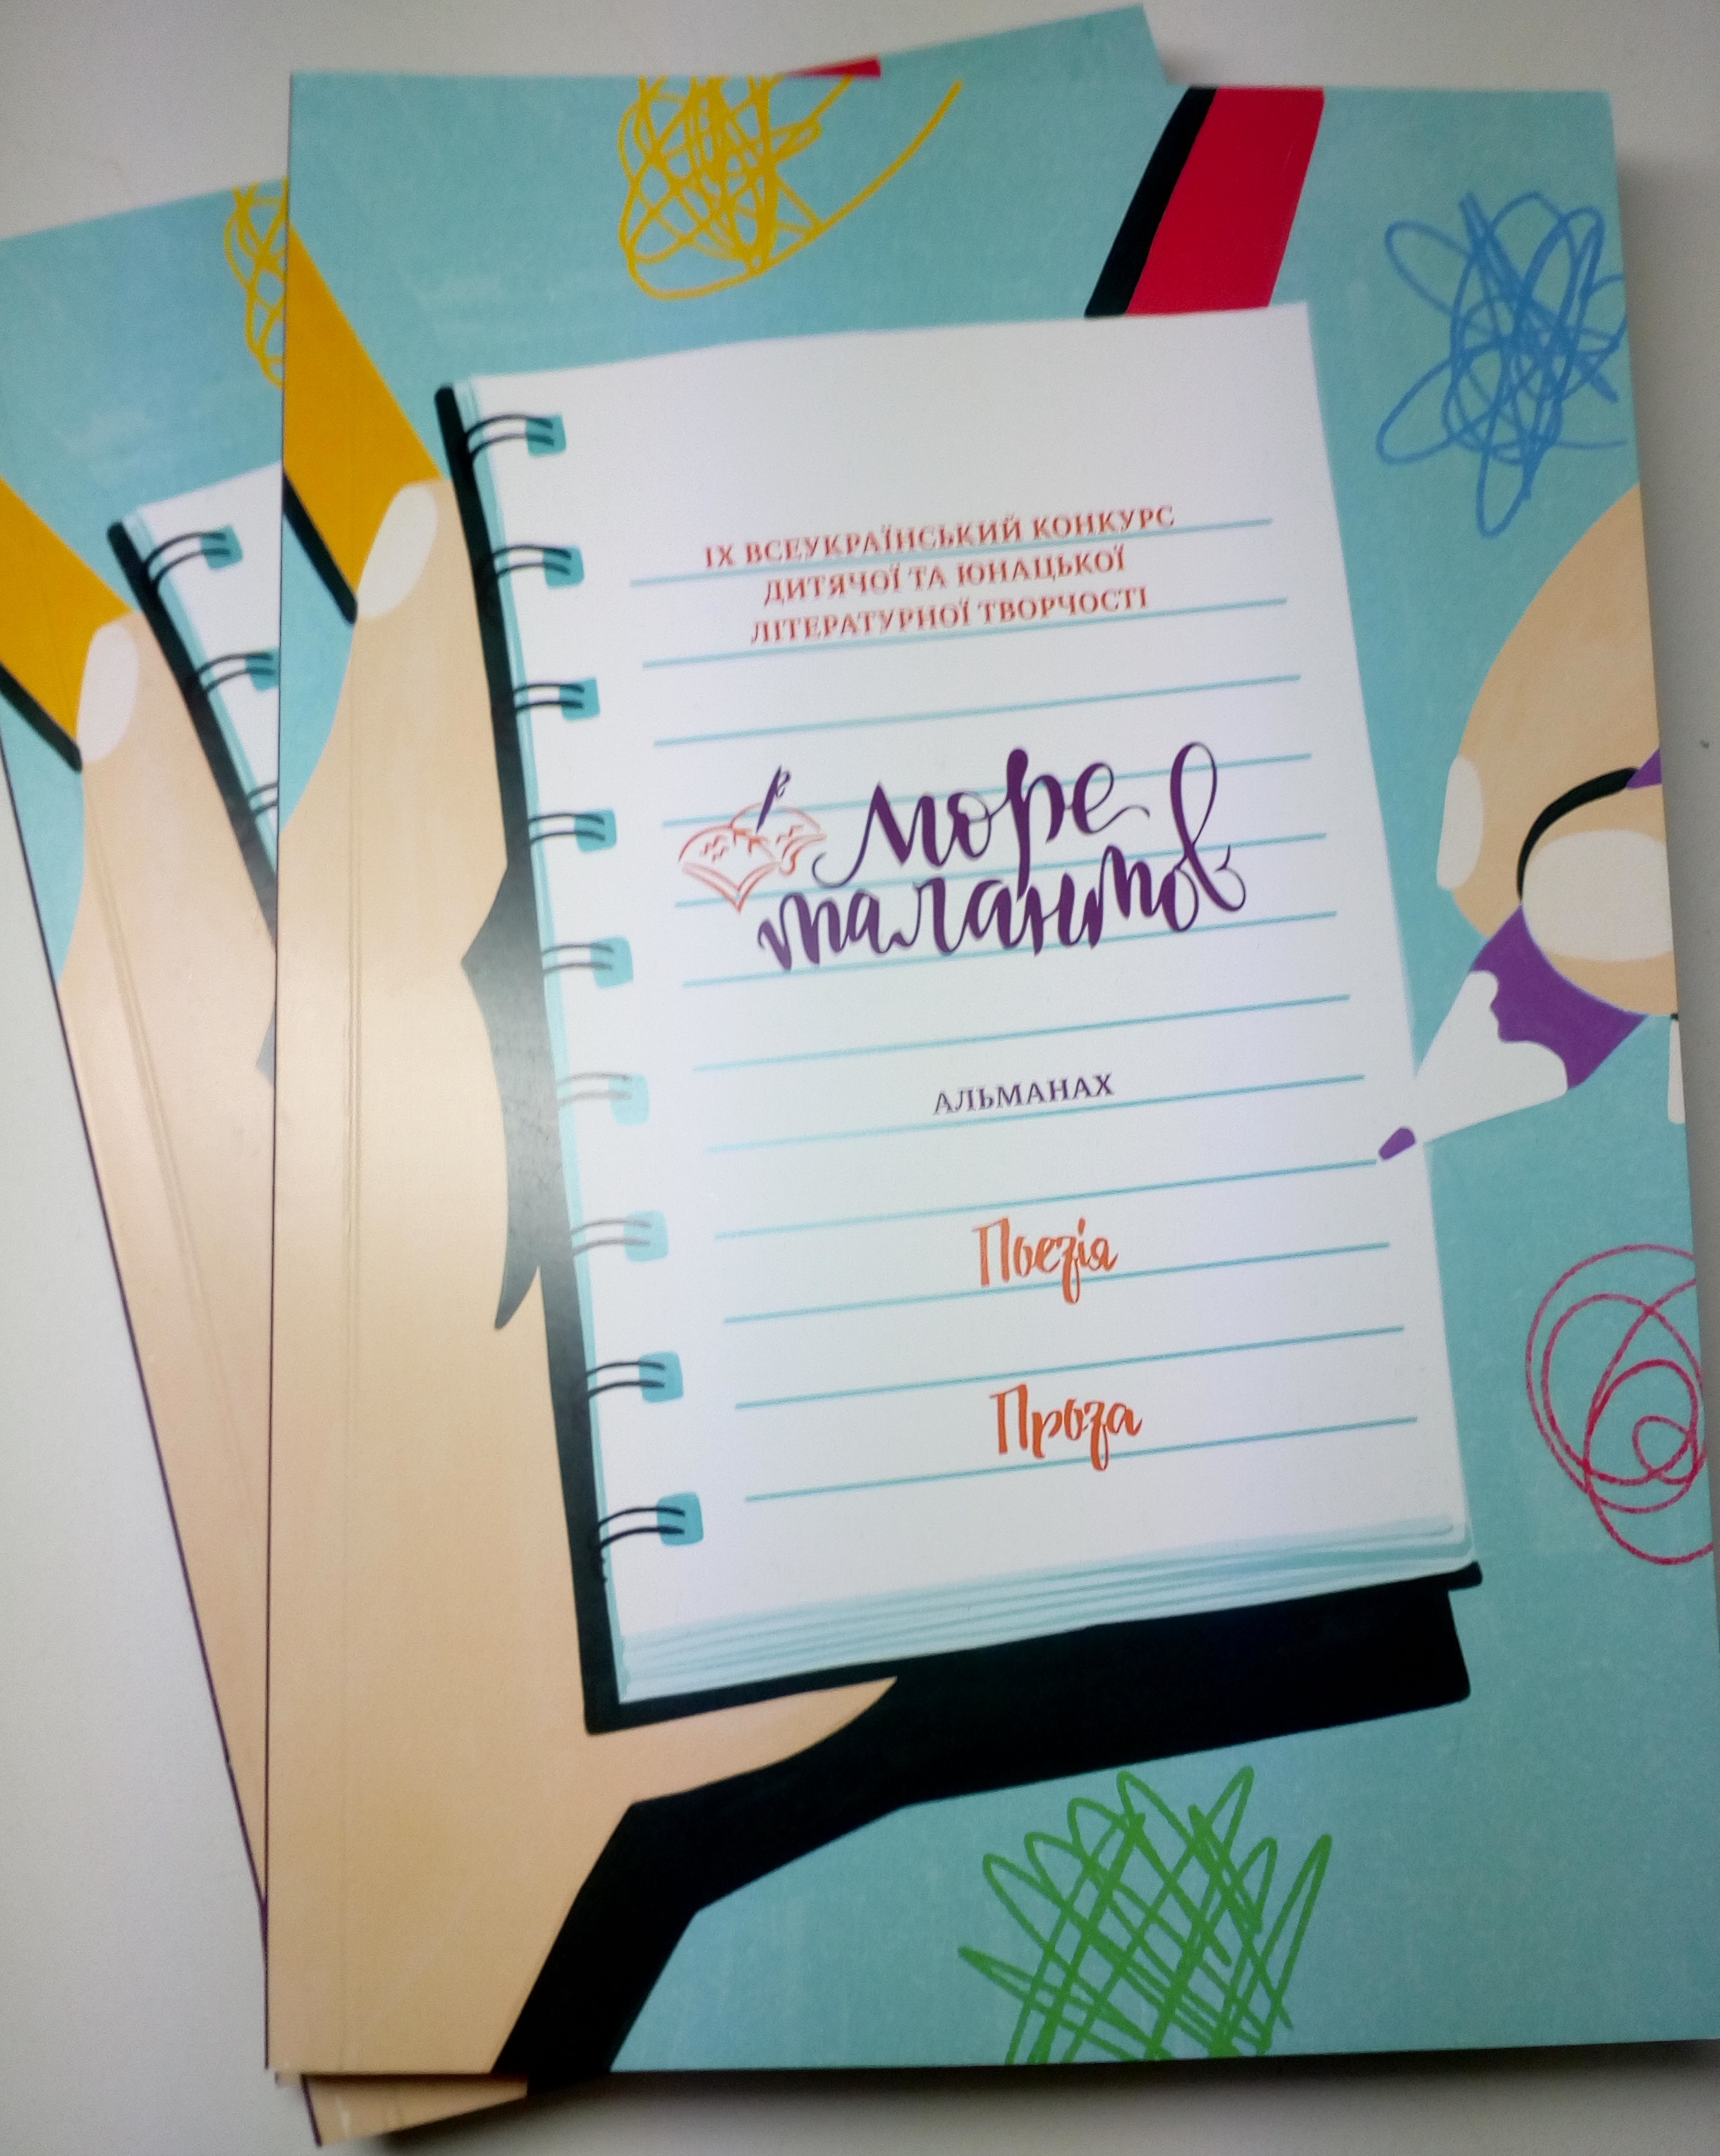 ІХ ВСЕУКРАЇНСЬКИЙ КОНКУРС
ДИТЯЧОЇ ТА ЮНАЦЬКОЇ
ЛІТЕРАТУРНОЇ ТВОРЧОСТІ
Море
талантов
АЛЬМАНАХ
Поезія
Проза